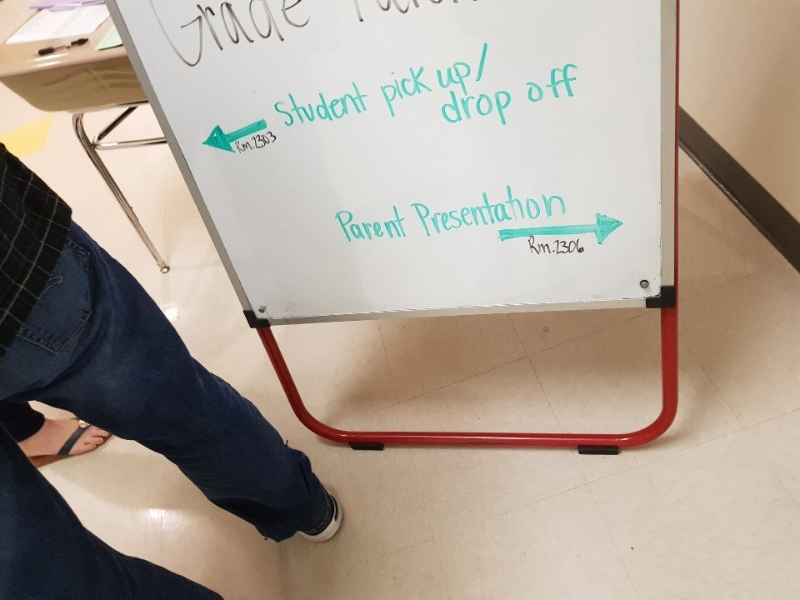 Grade
Student pick up/
drop off
Rm.2303
Parent Presentation
Rm.2306